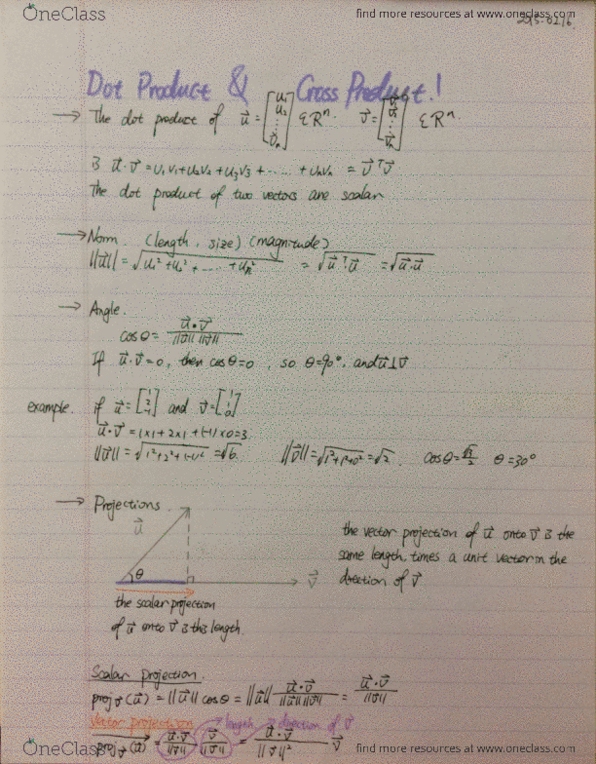 OneClass find more resources at www.oneclass.com
Dot Product & Cross Product!
→ The dot product of u⃗ = [u₁ u₂ ⋮ vₙ] ∈ Rⁿ. v⃗ = [v₁ v₂ ⋮ vₙ] ∈ Rⁿ.
is u⃗·v⃗ = u₁v₁+u₂v₂+u₃v₃+......+uₙvₙ = v⃗ᵀv⃗
The dot product of two vectors are scalar
→ Norm. (length, size) (magnitude)
||u⃗|| = √(u₁²+u₂²+....+uₙ²) = √(u⃗ᵀu⃗) = √(u⃗·u⃗)
→ Angle.
cosθ = u⃗·v⃗ / ||u⃗|| ||v⃗||
If u⃗·v⃗=0, then cosθ=0, so θ=90°, and u⃗⊥v⃗
example. if u⃗ = [1 2 -1] and v⃗ = [1 1 0]
u⃗·v⃗ = 1×1+2×1+(-1)×0=3.
||u⃗|| = √(1²+2²+(-1)²) = √6. ||v⃗|| = √(1²+1²+0²) = √2. cosθ = √3/2 θ=30°
→ Projections
u⃗
θ
v⃗
the scalar projection
of u⃗ onto v⃗ is this length.
the vector projection of u⃗ onto v⃗ is the
same length, times a unit vector in the
direction of v⃗
Scalar projection.
projᵥ⃗(u⃗) = ||u⃗|| cosθ = ||u⃗|| u⃗·v⃗ / ||u⃗|| ||v⃗|| = u⃗·v⃗ / ||v⃗||
Vector projection → length → direction of v⃗
projᵥ⃗(u⃗) = u⃗·v⃗ / ||v⃗|| v⃗ / ||v⃗|| = u⃗·v⃗ / ||v⃗||² v⃗
OneClass find more resources at www.oneclass.com